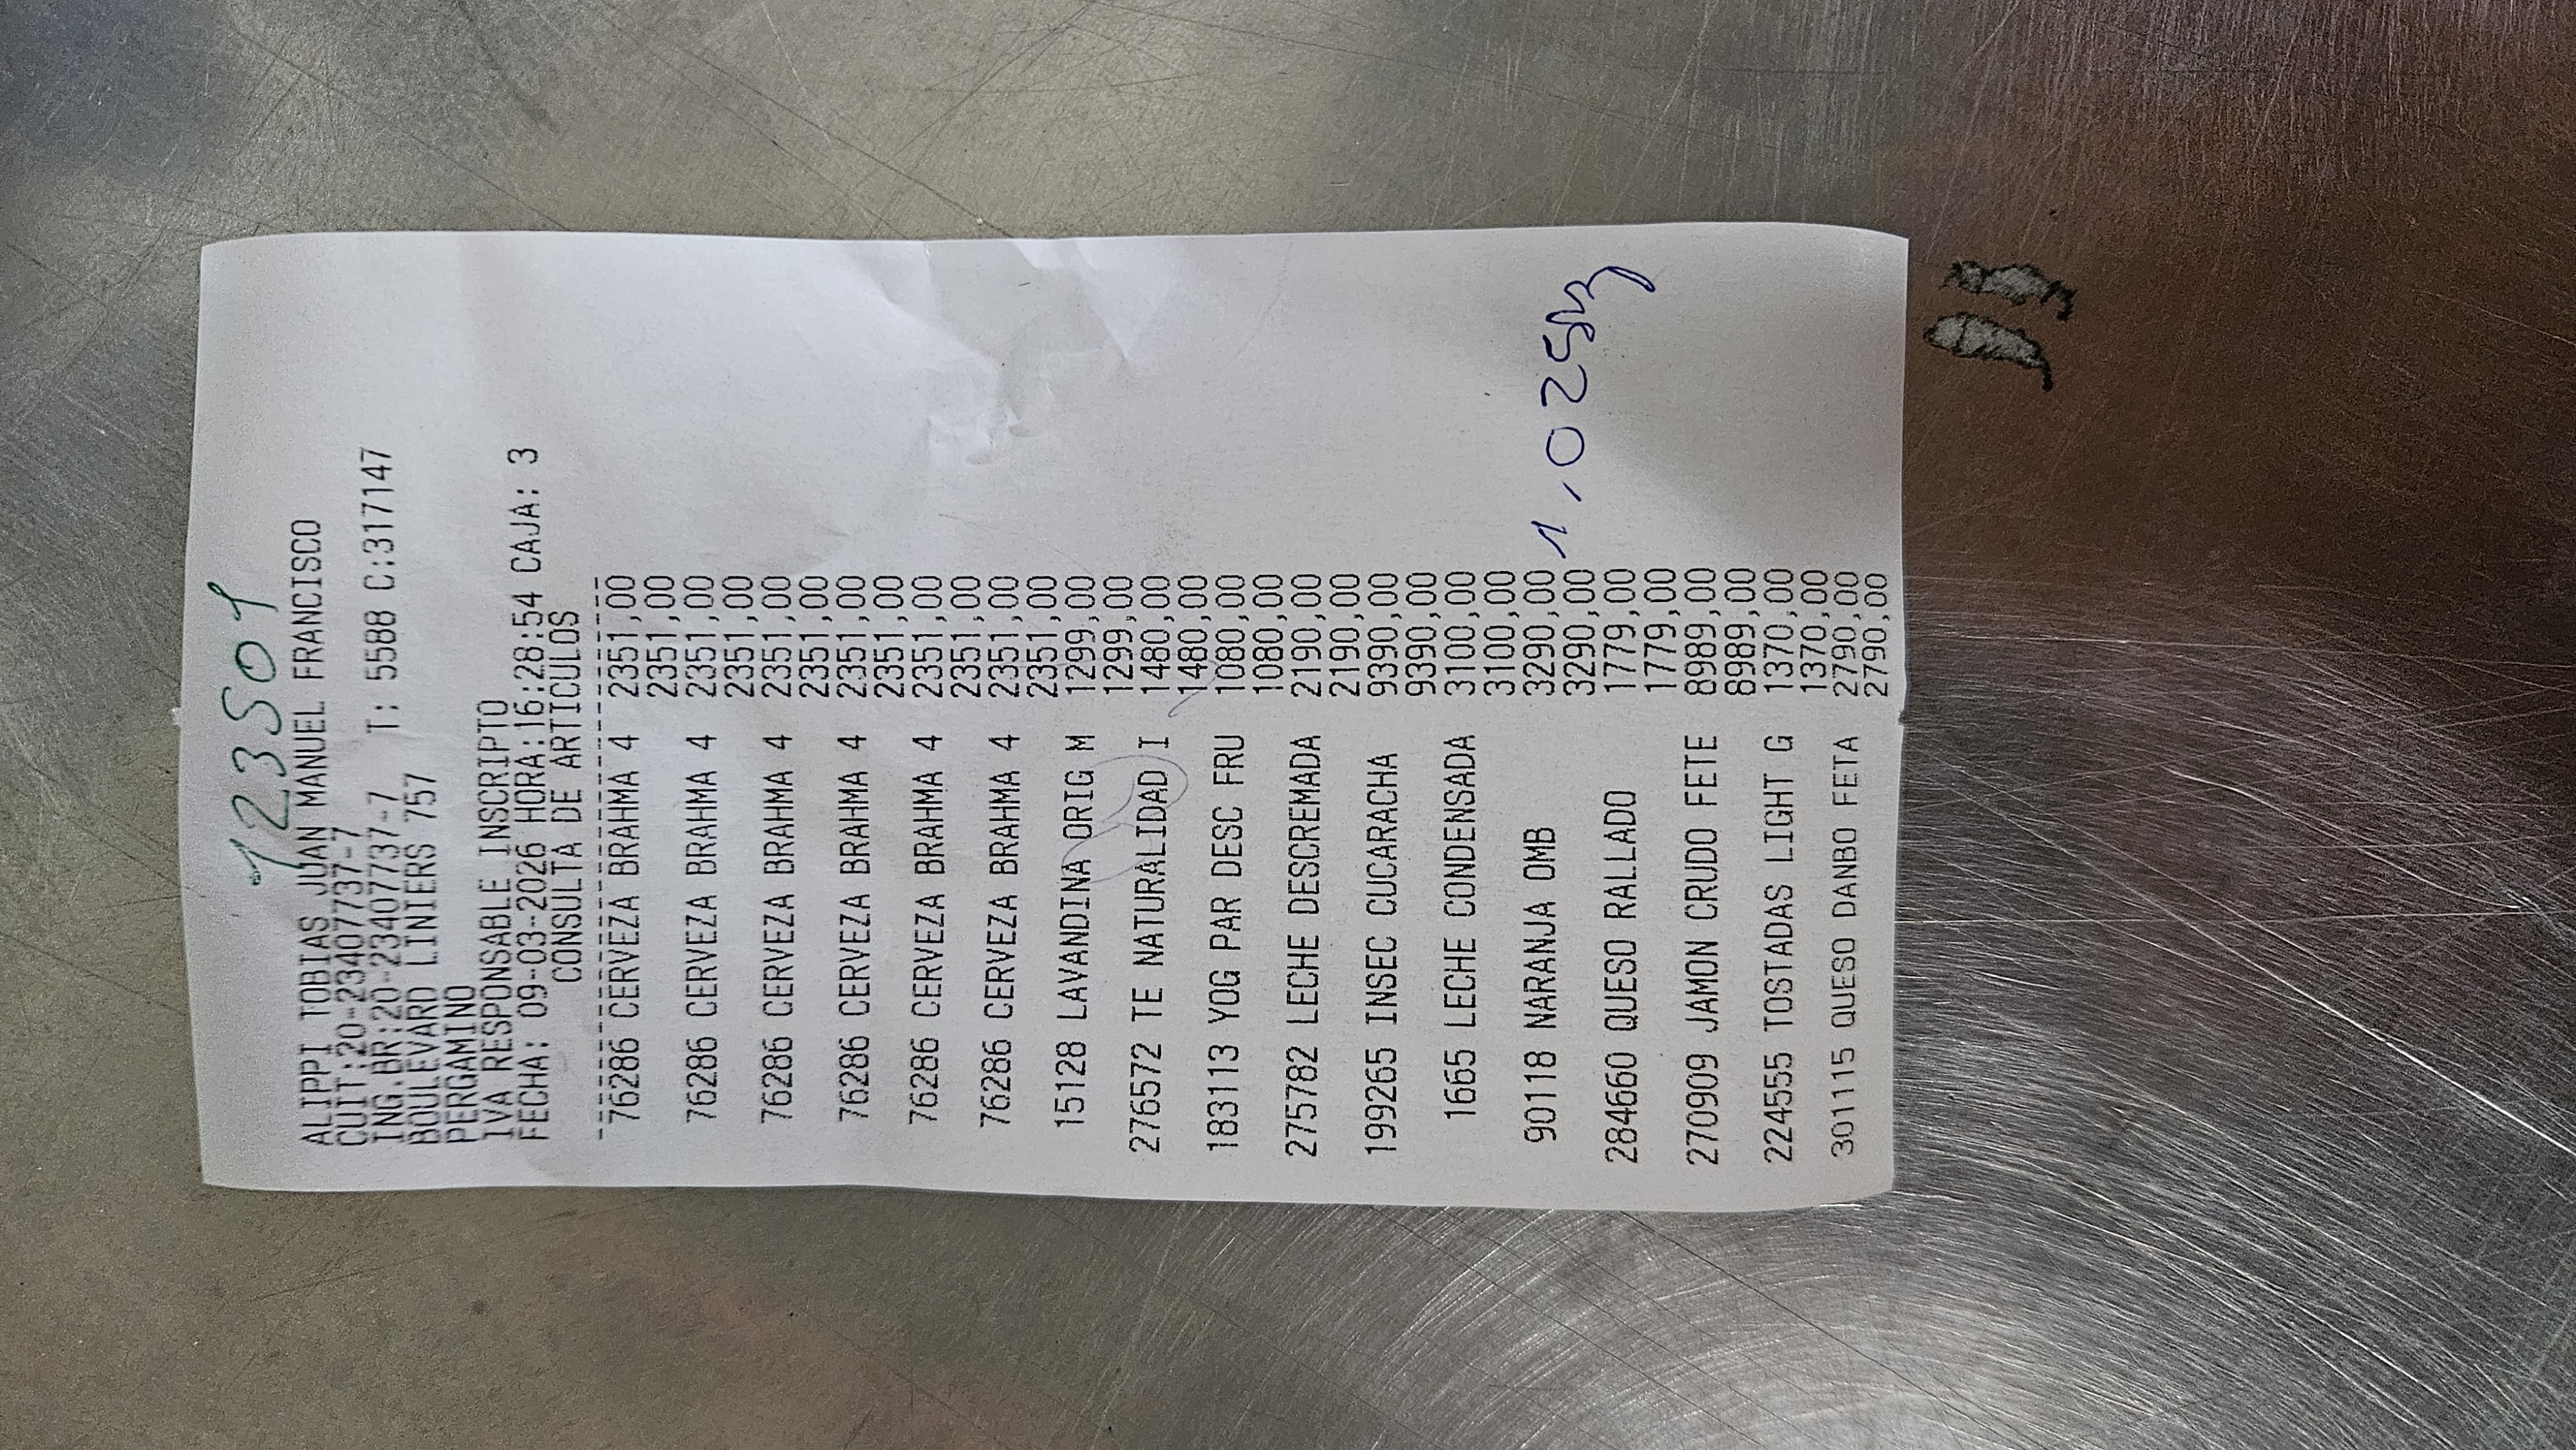 123501
ALIPPI TOBIAS JUAN MANUEL FRANCISCO
CUIT:20-23407737-7
ING.BR:20-23407737-7 T: 5588 C:317147
BOULEVARD LINIERS 757
PERGAMINO
IVA RESPONSABLE INSCRIPTO
FECHA: 09-03-2026 HORA:16:28:54 CAJA: 3
CONSULTA DE ARTICULOS
76286 CERVEZA BRAHMA 4 2351,00
2351,00
76286 CERVEZA BRAHMA 4 2351,00
2351,00
76286 CERVEZA BRAHMA 4 2351,00
2351,00
76286 CERVEZA BRAHMA 4 2351,00
2351,00
76286 CERVEZA BRAHMA 4 2351,00
2351,00
76286 CERVEZA BRAHMA 4 2351,00
2351,00
15128 LAVANDINA ORIG M 1299,00
1299,00
276572 TE NATURALIDAD I 1480,00
1480,00
183113 YOG PAR DESC FRU 1080,00
1080,00
275782 LECHE DESCREMADA 2190,00
2190,00
199265 INSEC CUCARACHA 9390,00
9390,00
1665 LECHE CONDENSADA 3100,00
3100,00
90118 NARANJA OMB 3290,00 1,025kg
3290,00
284660 QUESO RALLADO 1779,00
1779,00
270909 JAMON CRUDO FETE 8989,00
8989,00
224555 TOSTADAS LIGHT G 1370,00
1370,00
301115 QUESO DANBO FETA 2790,00
2790,00